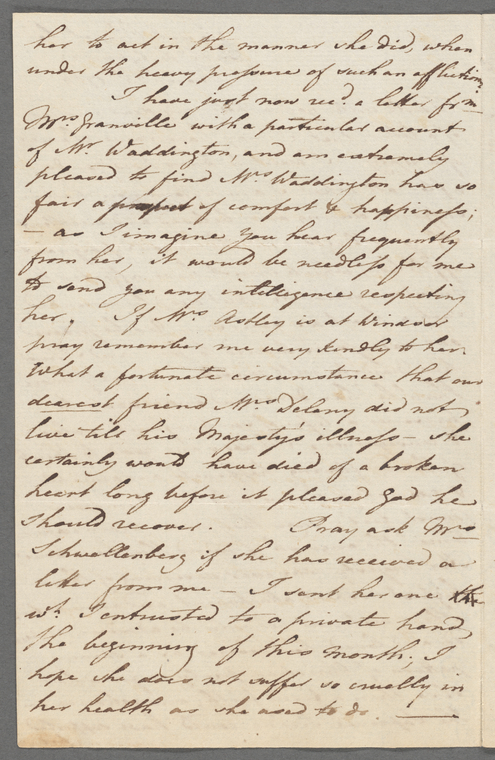 her to act in the manner she did, when
under the heavy pressure of such an affliction,
I have just now recd. a letter from
Mrs Granville with a particular account
of Mr Waddington, and am extremely
pleased to find Mrs Waddington has so
fair a prospect of comfort & happiness;
– as I imagine you hear frequently
from her, it would be needless for me
to send you any intelligence respecting
her. If Mrs Astley is at Windsor
pray remember me very kindly to her.
What a fortunate circumstance that our
dearest friend Mrs Delany did not
live till his Majesty's illness – she
certainly would have died of a broken
heart long before it pleased God he
should recover. Pray ask Mrs
Schwellenberg if she has received a
letter from me – I sent her one
wh. I entrusted to a private hand,
the beginning of this month; I
hope she does not suffer so cruelly in
her health as she used to do. —